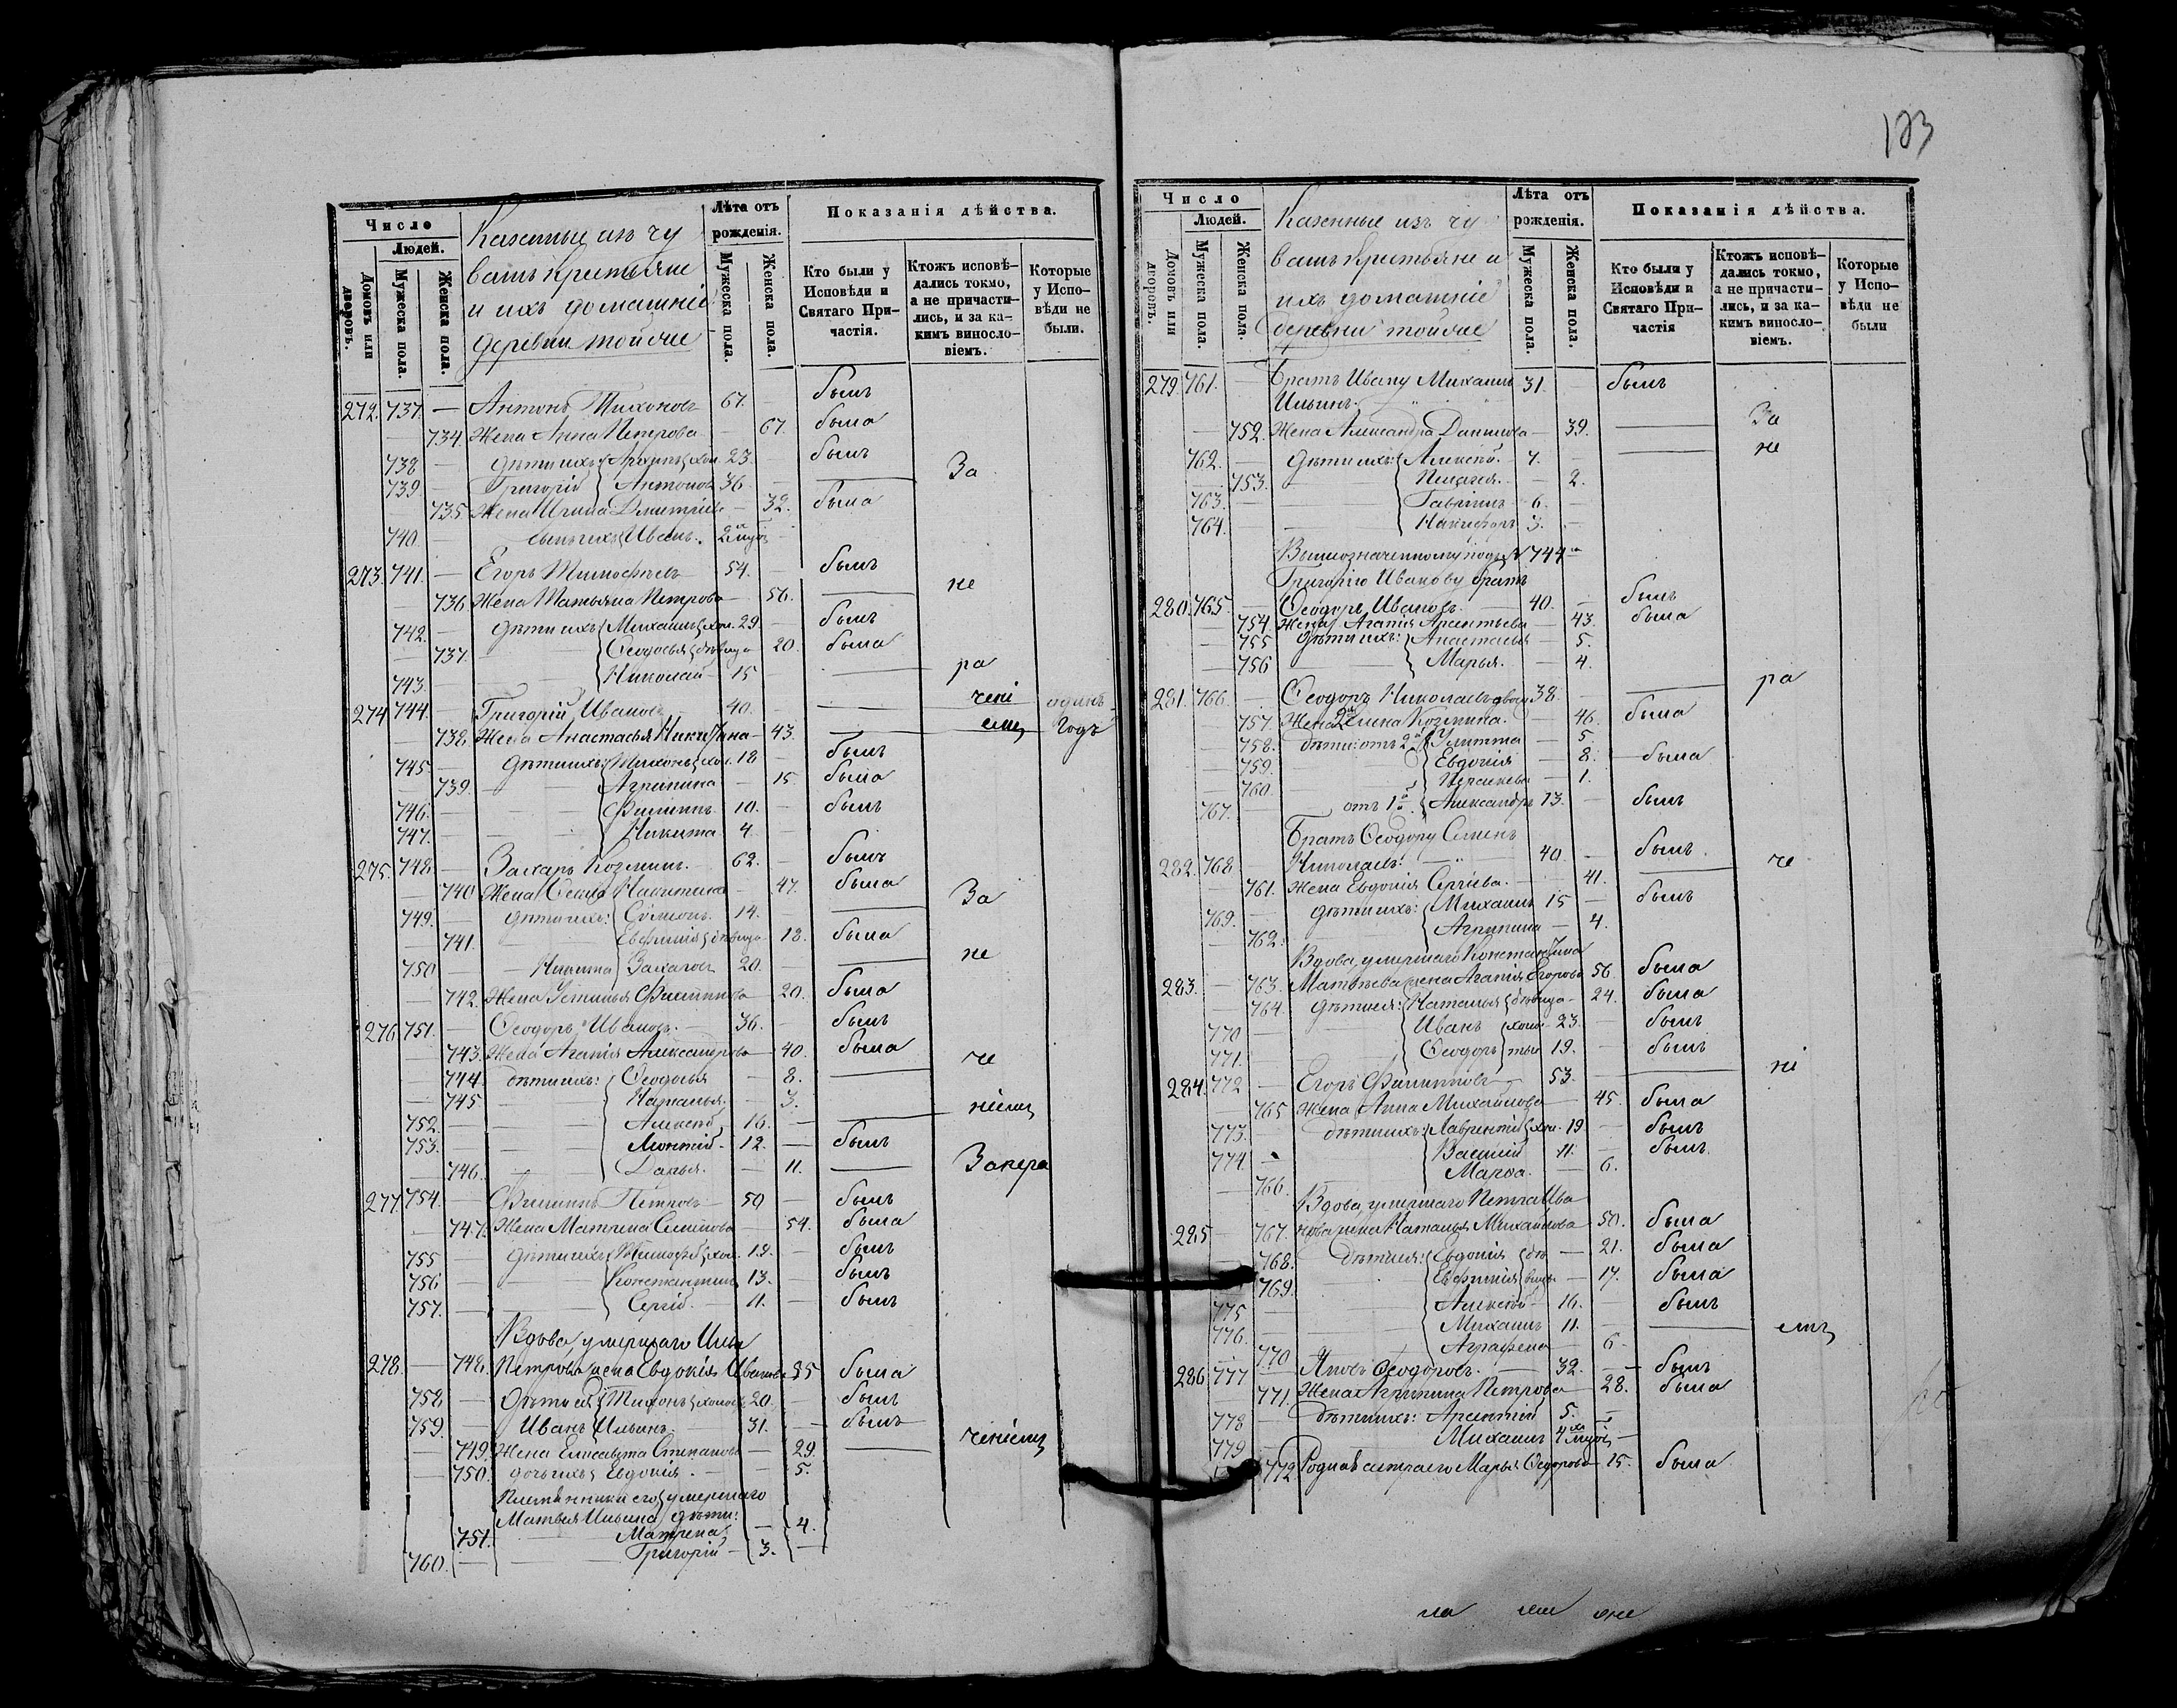 123
Число
Людей.
Домовъ или дворовъ.
Мужеска пола.
Женска пола.
Казенные изъ чу
вашъ крестьяне
и ихъ домашніе
деревни тойже
Лѣта отъ
рожденія.
Мужеска пола.
Женска пола.
Показанія дѣйства.
Кто были у
Исповѣди и
Святаго При-
частія.
Ктожъ исповѣ-
дались токмо,
а не причасти-
лись, и за ка-
кимъ виносло-
віемъ.
Которые
у Испо-
вѣди не
были.
272. 737. — Антонъ Тихоновъ 67. — былъ
— 734. Жена Анна Петрова — 67. была
738 — дѣти ихъ: Архипъ хол. 23. — былъ
739. — Григорій Антоновъ 36. — — За
735 Жена Ирина Дмитріева — 32. была
740. — сынъ ихъ Иванъ.
273. 741. — Егоръ Тимофѣевъ 54. — былъ
— 736 Жена Татьяна Петрова — 56. — не
742. — дѣти ихъ Михаилъ хол. 29. — былъ
— 737. — Ѳеодосья дѣвица 20. была
743. — Николай 15 — — ра
274 744. — Григорій Ивановъ 40. — — чені одинъ
— 738 Жена Анастасья Никитина — 43. — емъ годъ
745 — дѣти ихъ: Тихонъ хол. 18 — былъ
— 739. — Агрипина — 15 была
746. — Филиппъ 10. — былъ
747. — Никита 4. —
275. 748. — Захаръ Козминъ. 62. — былъ
740 Жена Никитина — 47. была За
749. — дѣти ихъ: Симеонъ. 14. — —
— 741. — Евфимія дѣвица 18. была
750 — Никита Захаровъ 20. — — не
— 742. Жена Устинья Филиппова — 20. была
276 751. — Ѳеодоръ Ивановъ. 36. — былъ
— 743. Жена Агапія Александрова — 40. была
— 744. дѣти ихъ: Ѳеодосья — 8. — че
— 745. — Наталья. — 3.
752. — Алексѣй 16. — — ніемъ
753. — Леонтій 12. — былъ
— 746. — Дарья. — 11. — Закера
277 754. — Филиппъ Петровъ 50 — былъ
— 747. Жена Матрена Семенова — 54. была
755 — дѣти ихъ Тимофей хол. 19. — былъ
756 — Константинъ 13. — былъ
757. — Сергій. — 11. — былъ
Вдова умершаго Ильи
278. — 748. Петрова жена Евдокія Иванова 55 была
758 — дѣти ея Тихонъ холос 20. — былъ
759. — Иванъ Ильинъ. 31. — былъ
— 749. Жена Елисавета Степанова — 29. — ченіемъ
— 750. дочь ихъ Евдокія. — 5.
Племянники его умершаго
Матвея Ильина дѣти:
751. Матрена — 4.
760. — Григорій — 3. —
Число
Людей.
Домовъ или дворовъ.
Мужеска пола.
Женска пола.
Казенные изъ чу
вашъ крестьяне и
ихъ домашніе
деревни тойже
Лѣта отъ
рожденія.
Мужеска пола.
Женска пола.
Показанія дѣйства.
Кто были у
Исповѣди и
Святаго При-
частія
Ктожъ исповѣ-
дались токмо,
а не причасти-
лись, и за ка-
кимъ виносло-
віемъ.
Которые
у Испо-
вѣди не
были
279. 761. — Братъ Ивану Михаилъ 31. — былъ
Ильинъ.
— 752. Жена Александра Данилова — 39. — За
762. — дѣти ихъ: Алексѣй. 7. — — не
753. — Пелагея. — 2.
763. — Гавріилъ 6. —
764. — Никифоръ 3. —
Вышеозначенному подъ № 744
Григорію Иванову братъ
280. 765. — Ѳеодоръ Ивановъ. 40. — былъ
754. Жена Агапія Арсентьева — 43. была
— 755 дѣти ихъ: Анастасья — 5.
— 756 — Марья. — 4.
281. 766. — Ѳеодоръ Николаевъ 38. — — ра
— 757. Жена 2я Козмина. — 46. была
— 758. дѣти: отъ 2й Улитта — 5.
— 759. — Евдокія — 8. была
— 760. — — 1.
767. — отъ 1й Александръ 13. — былъ
Братъ Ѳеодору Семенъ
282. 768. — Николаевъ. 40. — былъ
761. Жена Евдокія Сергіева. — 41. — че
769. — дѣти ихъ: Михаилъ 15 — былъ
— 762. Агрипина — 4.
Вдова умершаго Константина
283. — 763. Матвѣева жена Агапія Егорова 56 была
— 764. дѣти ея: Наталья дѣвица — 24. была
770 — Иванъ холос 23. — былъ
771. — Ѳеодоръ тые 19. — былъ
284. 772 — Егоръ Филипповъ 53. — — ні
765 Жена Анна Михайлова — 45. была
773. — дѣти ихъ: Лаврентій хол. 19. — былъ
774. — Василій 11. — былъ
— 766. Марѳа. — 6.
Вдова умершаго Петра Ива
285 — 767. нова жена Наталья Михайлова 50. была
768. дѣти ея: Евдокія дѣ — 21. была
769. Евфимія вицы — 17. была
775 — Алексѣй 16. — былъ
776. — Михаилъ 11. — — емъ
— 770 Аграфена — 6
286. 777 — Яковъ Ѳеодоровъ. 32. — былъ
771. Жена Агрипина Петрова — 28. была
778 — дѣти ихъ: Арсентій 5. —
779 — Михаилъ
772 Родная сестра его Марья Ѳедорова 15. была